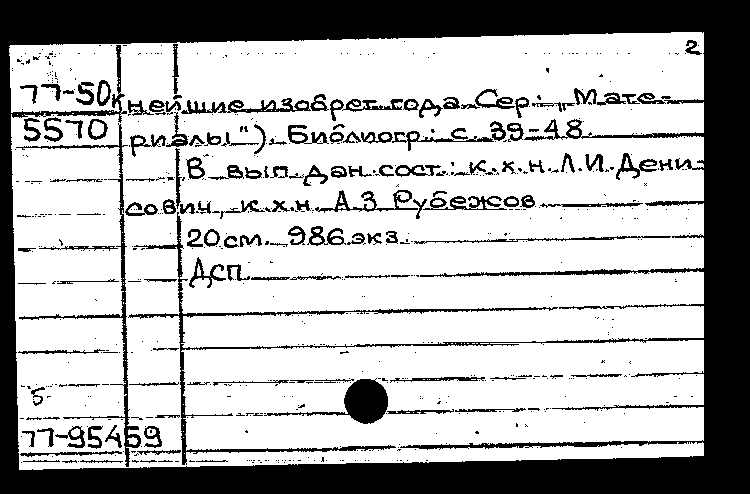 2
77-50к
нейшие изобрет. года. Сер.: „Мате-
5570
риалы"). Библиогр.: с. 39-48.
В вып. дан. сост.: к.х.н. Л.И. Дени-
сович, к.х.н. А.З. Рубежов
20 см. 986 экз.
ДСП
5
77-95459